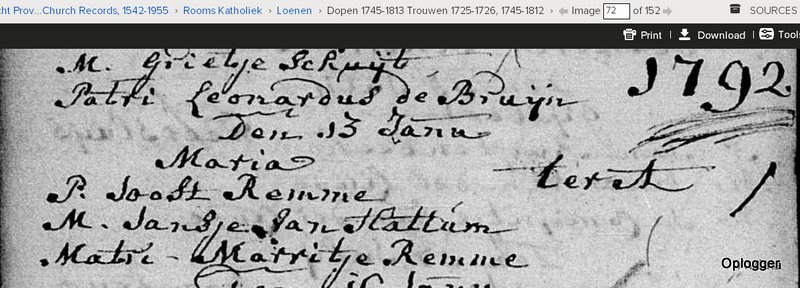 cht Prov...Church Records, 1542-1955 › Rooms Katholiek › Loenen › Dopen 1745-1813 Trouwen 1725-1726, 1745-1812 › Image 72 of 152 SOURCES
Print Download Tools
M. Grietje Schuijt
Patri Leonardus de Bruijn
1792.
Den 13 Janu
Maria
P. Joost Remme
M. Jansje Van Hattum
Matri - Marritje Remme
Oplogger